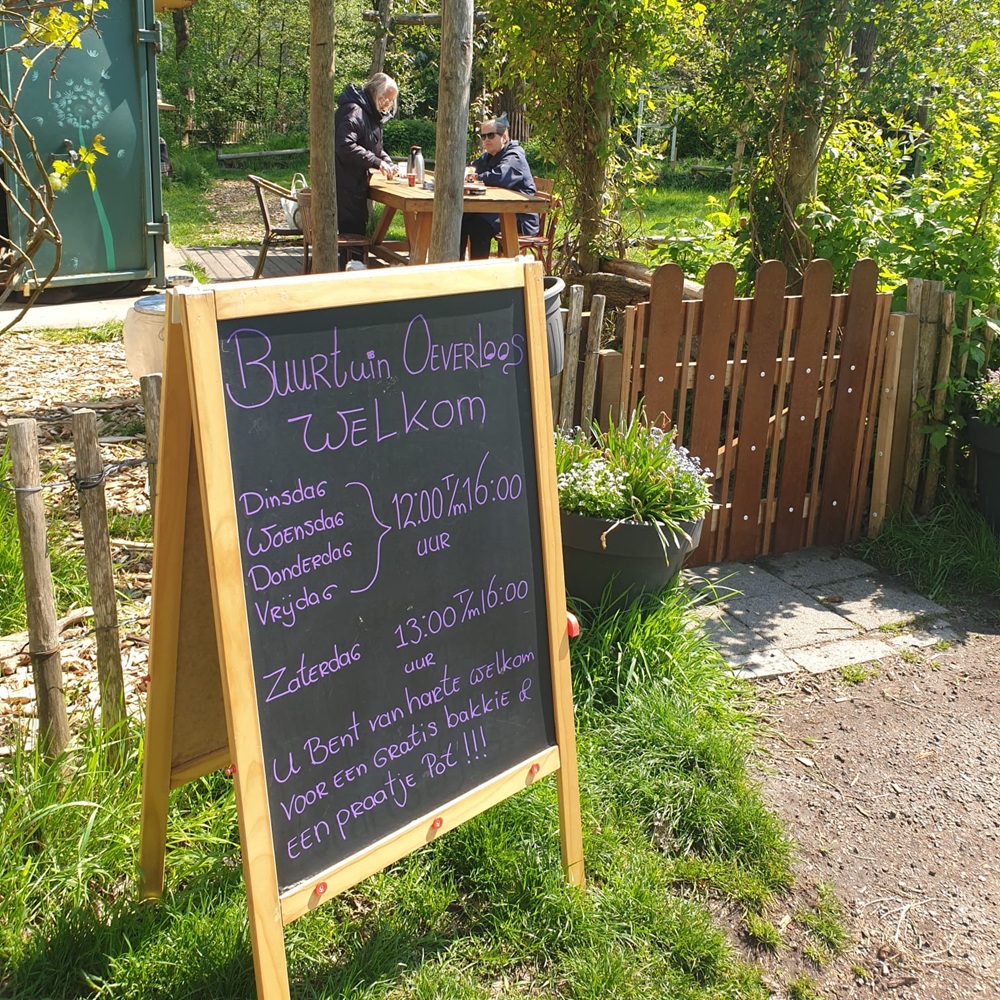 Buurtuin Oeverloos
Welkom
Dinsdag
Woensdag
Donderdag
Vrijdag
12:00 T/m 16:00
uur
Zaterdag 13:00 T/m 16:00
uur
U Bent van harte welkom
voor een gratis bakkie &
een praatje Pot !!!